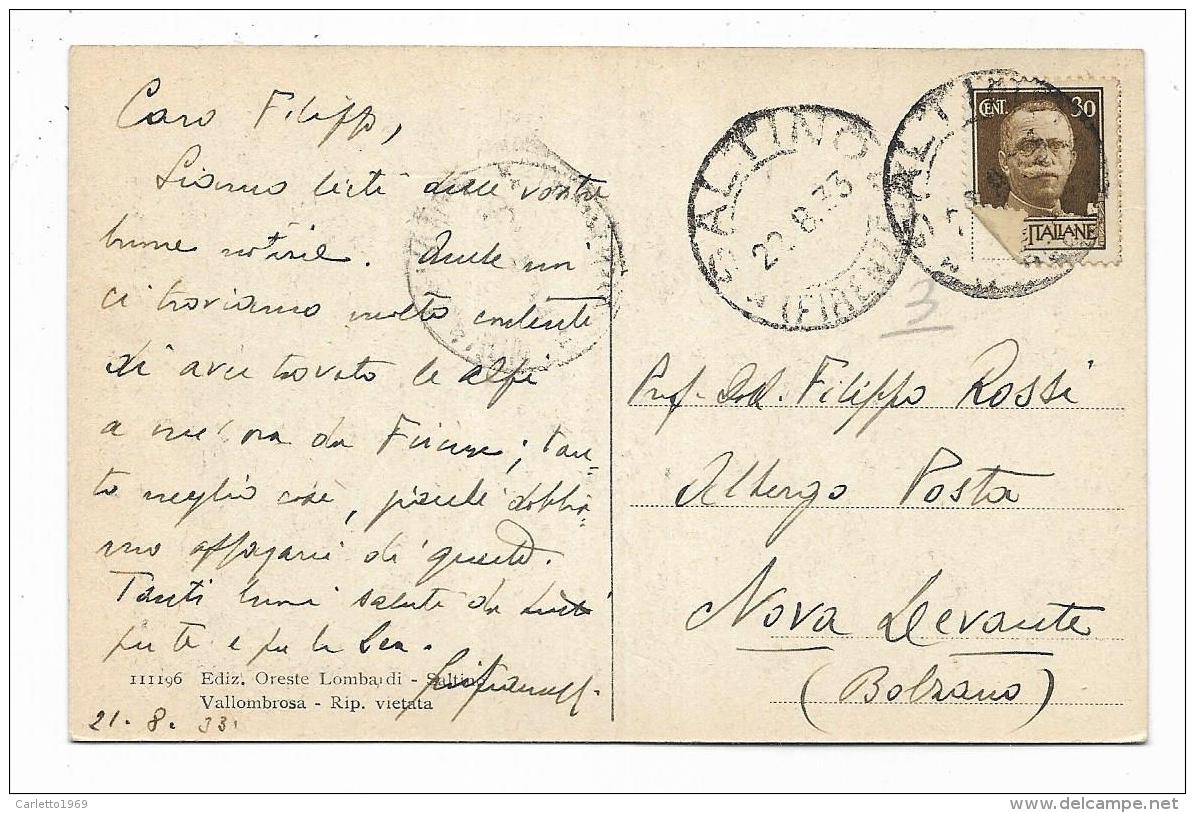 Caro Filippo,
Siamo lieti delle vostre
buone notizie. Anche noi
ci troviamo molto contenti
di aver trovato le alpi
a un'ora da Firenze; tan-
to meglio così, perché dobbia-
mo appagarci di questo.
Tanti buoni saluti da tutti
per te e per la Lea.
111196 Ediz. Oreste Lombardi - Saltino
Vallombrosa - Rip. vietata
21.8.33
SALTINO
22.8.33
(FIRENZE)
SALTINO
CENT. 30
ITALIANE
3
Prof. Dott. Filippo Rossi
Albergo Posta
Nova Levante
(Bolzano)
Carletto1969
delcampe.net